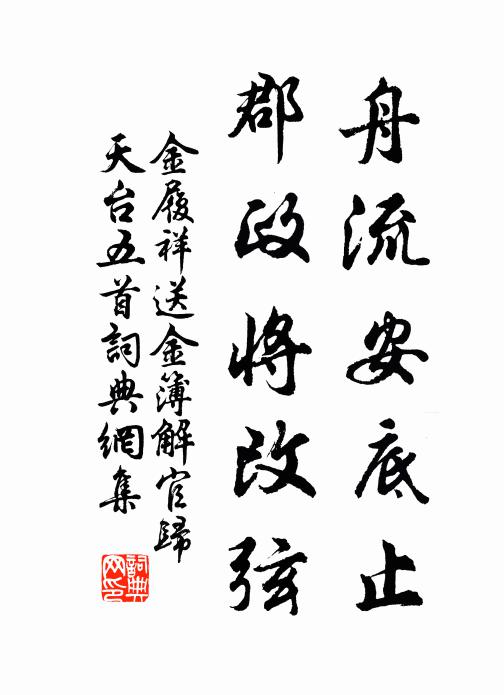 舟流安底止
郡政將改弦
金履祥送金簿解官歸
天台五首詞典網集
詞典网印